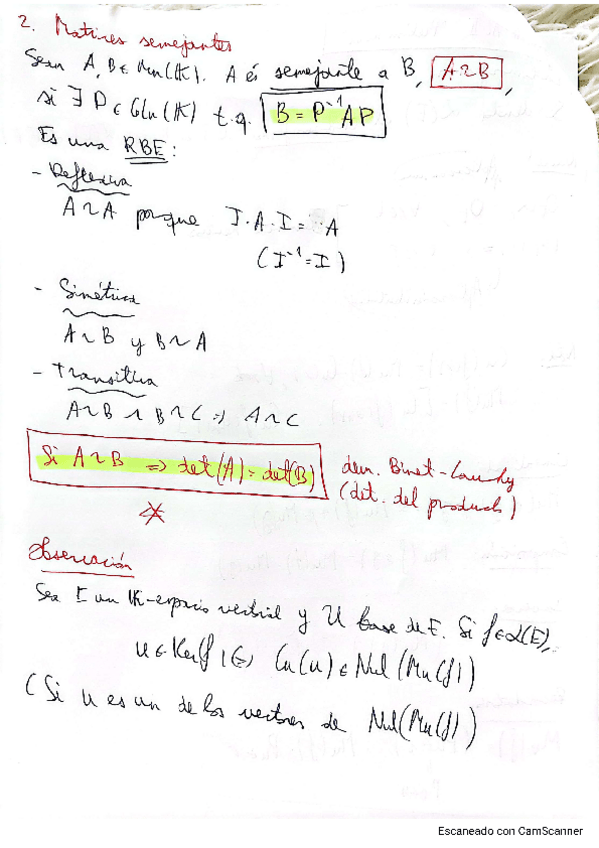 2. Matrices semejantes
Sean A, B ∈ Mn(IK). A és semejante a B, A~B,
si ∃ P ∈ Gln(IK) t.q. B = P⁻¹AP
Es una RBE:
- Reflexiva
A~A porque I·A·I = A
(I⁻¹=I)
- Simétrica
A~B y B~A
- Transitiva
A~B ∧ B~C => A~C
Si A~B => det(A) = det(B) dem. Binet-Cauchy
(det. del producto)
Observación
Sea E un IK-espacio vectorial y U base de E. Si f∈L(E),
u ∈ Ker(f) (=) Cu(u) ∈ Nul(Mu(f))
(Si u es un de los vectores de Nul(Mu(f))
Escaneado con CamScanner